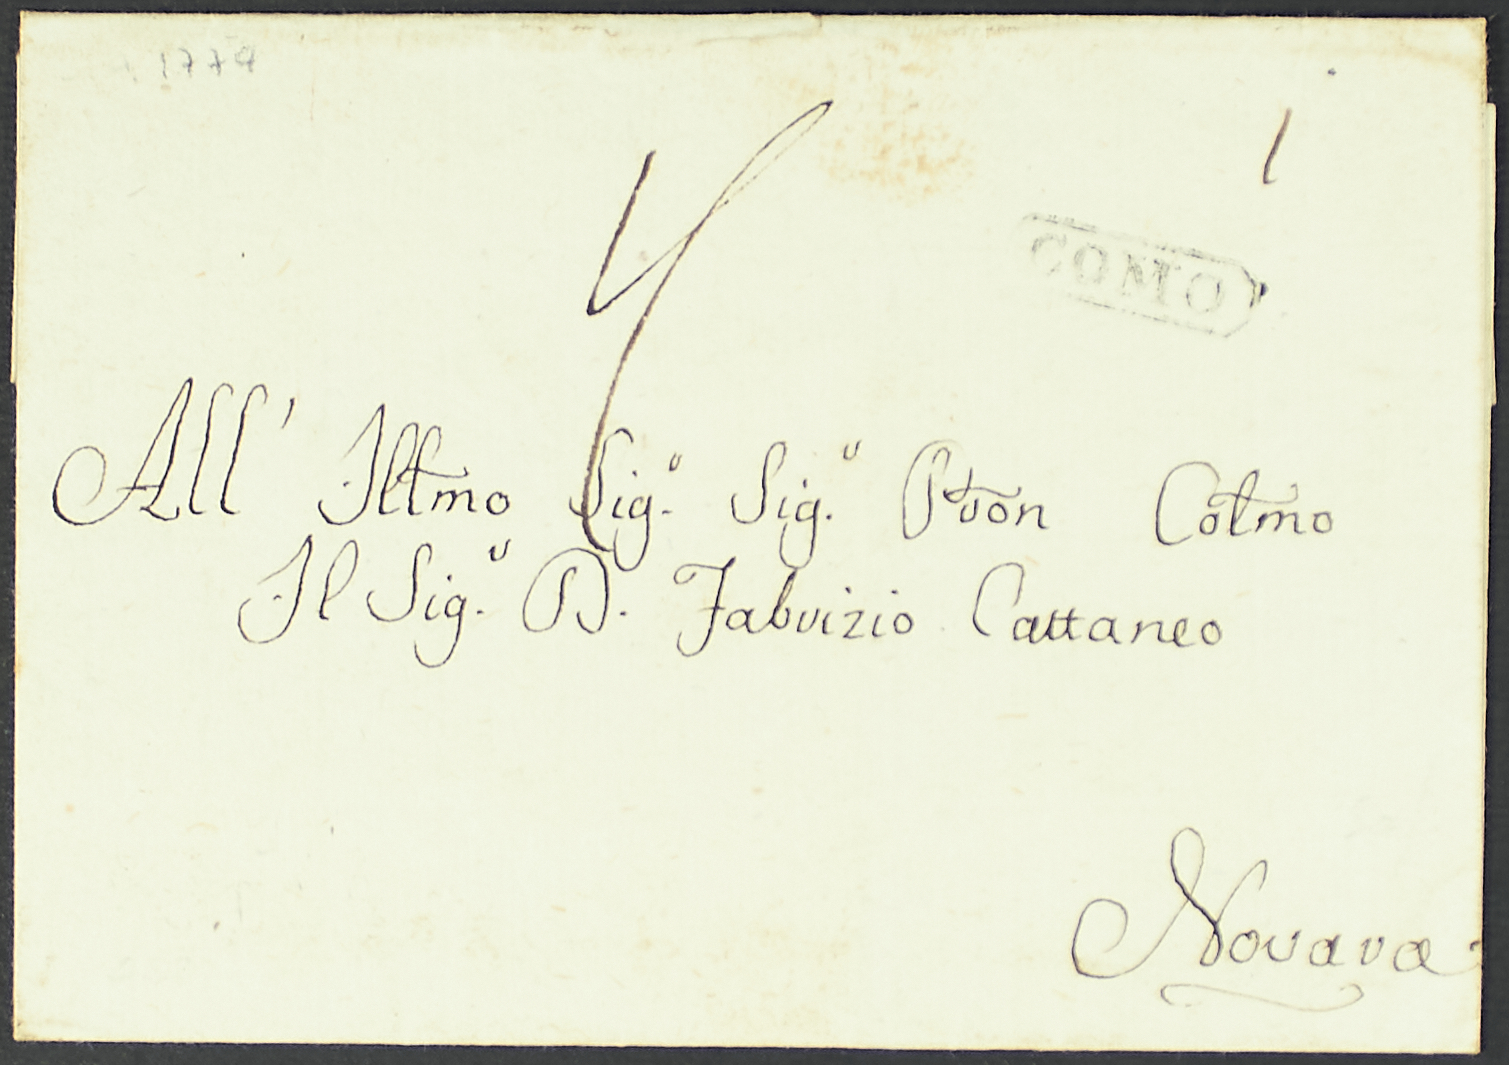 1779
1
COMO
All' Illmo Sig.r Sig.r Pron Colmo
Il Sig.r D. Fabrizio Cattaneo
Novara